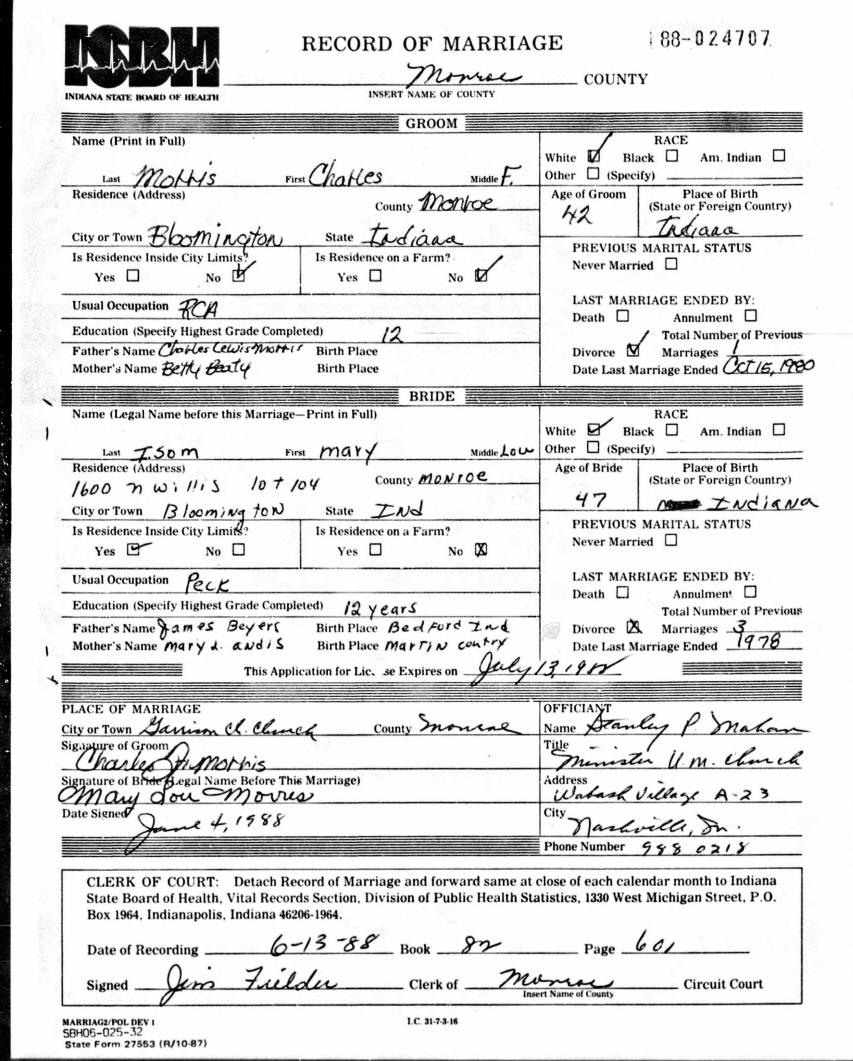 ISBH
INDIANA STATE BOARD OF HEALTH
RECORD OF MARRIAGE
88-024707
Monroe COUNTY
INSERT NAME OF COUNTY
GROOM
Name (Print in Full)
Last Morris First Charles Middle F.
RACE
White ☑ Black ☐ Am. Indian ☐
Other ☐ (Specify)
Residence (Address)
County Monroe
City or Town Bloomington State Indiana
Age of Groom 42
Place of Birth
(State or Foreign Country)
Indiana
Is Residence Inside City Limits?
Yes ☐ No ☑
Is Residence on a Farm?
Yes ☐ No ☑
PREVIOUS MARITAL STATUS
Never Married ☐
Usual Occupation RCA
Education (Specify Highest Grade Completed) 12
Father's Name Charles Lewis Morris Birth Place
Mother's Name Betty Beaty Birth Place
LAST MARRIAGE ENDED BY:
Death ☐ Annulment ☐
Total Number of Previous
Divorce ☑ Marriages 1
Date Last Marriage Ended Oct 15, 1980
BRIDE
Name (Legal Name before this Marriage—Print in Full)
Last Isom First Mary Middle Lou
RACE
White ☑ Black ☐ Am. Indian ☐
Other ☐ (Specify)
Residence (Address)
1600 N Willis lot 104 County Monroe
City or Town Bloomington State Ind
Age of Bride 47
Place of Birth
(State or Foreign Country)
Indiana
Is Residence Inside City Limits?
Yes ☑ No ☐
Is Residence on a Farm?
Yes ☐ No ☒
PREVIOUS MARITAL STATUS
Never Married ☐
Usual Occupation Peck
Education (Specify Highest Grade Completed) 12 years
Father's Name James Beyers Birth Place Bedford Ind
Mother's Name Mary L. Andis Birth Place Martin contry
LAST MARRIAGE ENDED BY:
Death ☐ Annulment ☐
Total Number of Previous
Divorce ☒ Marriages 3
Date Last Marriage Ended 1978
This Application for Lic se Expires on July 13, 1988
PLACE OF MARRIAGE
City or Town Garrison Ch. Church County Monroe
Signature of Groom
Charles F. Morris
Signature of Bride (Legal Name Before This Marriage)
Mary Lou Morris
Date Signed June 4, 1988
OFFICIANT
Name Stanley P. Mahan
Title Minister U.M. Church
Address
Wabash Village A-23
City Nashville, In.
Phone Number 988 0218
CLERK OF COURT: Detach Record of Marriage and forward same at close of each calendar month to Indiana
State Board of Health, Vital Records Section, Division of Public Health Statistics, 1330 West Michigan Street, P.O.
Box 1964, Indianapolis, Indiana 46206-1964.
Date of Recording 6-13-88 Book 82 Page 601
Signed Jim Fielder Clerk of Monroe Circuit Court
Insert Name of County
MARRIAG2/POL DEV 1
SBH06-025-32
State Form 27553 (R/10-87)
I.C. 31-7-3-16